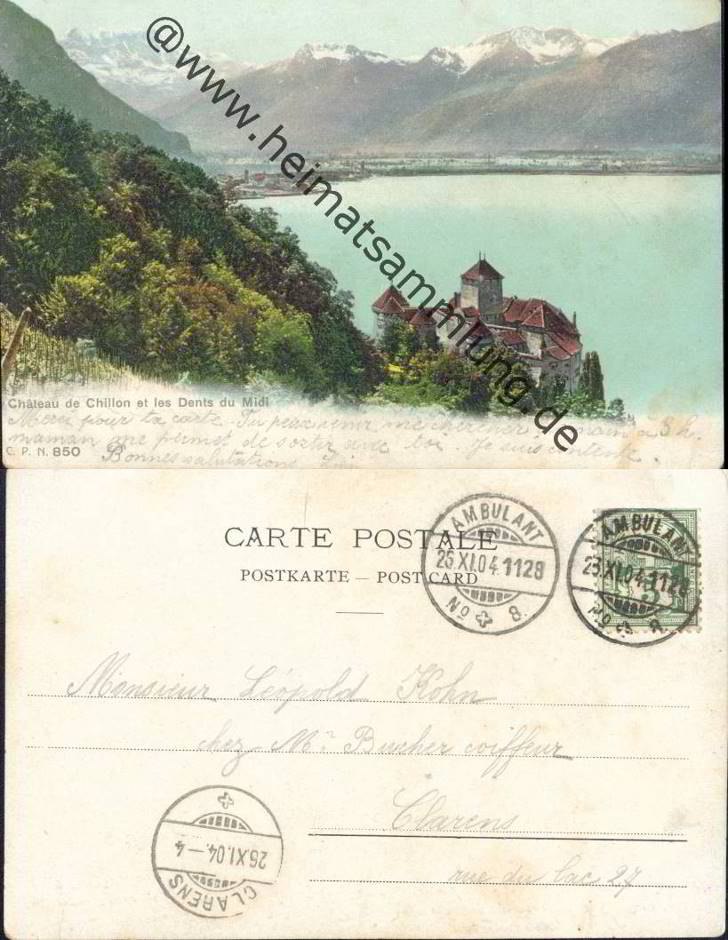 @www.heimatsammlung.de
Château de Chillon et les Dents du Midi
Merci pour ta carte. Tu peux venir me chercher demain à 3 h.
maman me permet de sortir avec toi. Je suis contente.
C. P. N. 850
Bonnes salutations
CARTE POSTALE
POSTKARTE — POST CARD
AMBULANT
26.XI.04.1128
No 8.
AMBULANT
23.XI.04.1128
No 8.
Monsieur Léopold Kohn
chez Mr Bucher coiffeur
Clarens
rue du Lac 27
26.XI.04.-4
CLARENS